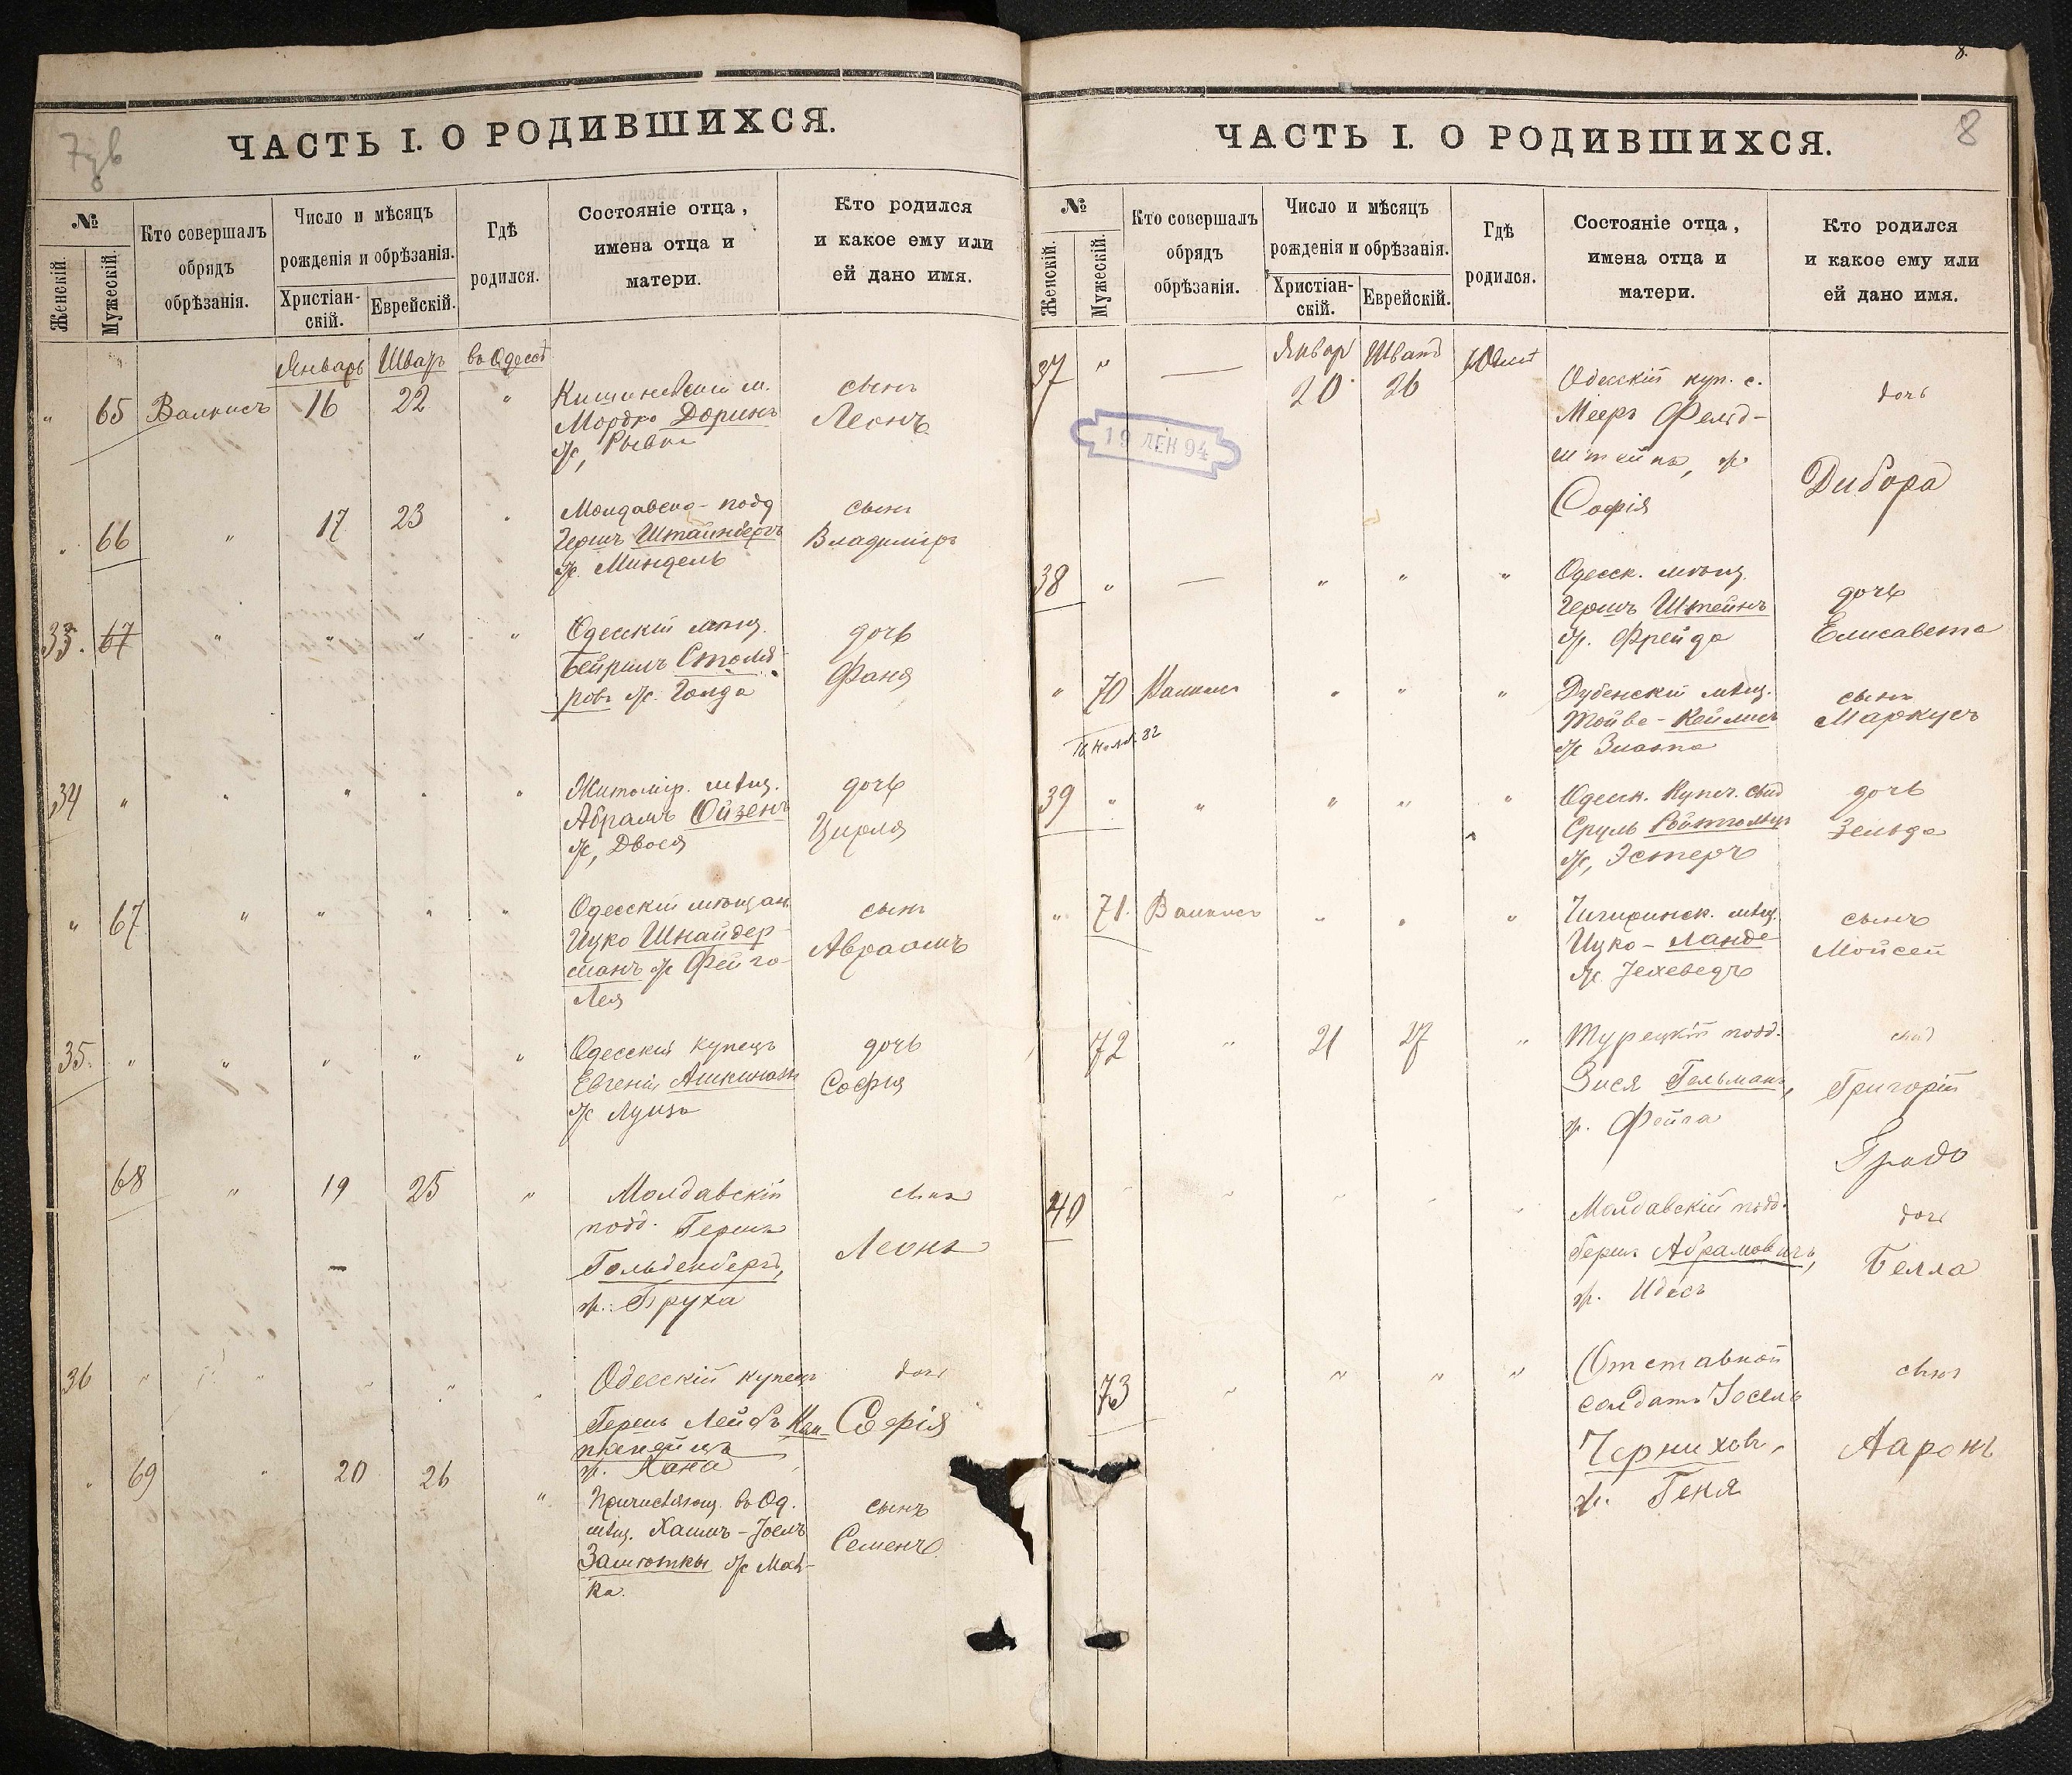 7 зв
ЧАСТЬ I. О РОДИВШИХСЯ.
№
Женскій.
Мужескій.
Кто совершалъ
обрядъ
обрѣзанія.
Число и мѣсяцъ
рожденія и обрѣзанія.
Христіан-
скій.
Еврейскій.
Гдѣ
родился.
Состояніе отца,
имена отца и
матери.
Кто родился
и какое ему или
ей дано имя.
Январь Шватъ въ Одессѣ
" 65 Валкисъ 16 22 "
Кишиневскій м.
Мордко Доринъ
ж, Рывка
сынъ
Леонъ
" 66 " 17 23 "
Молдавско-подд
Гершъ Штайнбергъ
ж. Миндель
сынъ
Владиміръ
33. 67 " " " "
Одесскій мѣщ.
Бейришъ Столя-
ровъ ж. Голда
дочь
Фаня
34 " " " " "
Житомір. мѣщ.
Абрамъ Ойзенъ
ж, Двося
дочь
Цирля
" 67 " " " "
Одесскій мѣщан.
Ицко Шнайдер-
манъ ж Фейга-
Лея
сынъ
Авраамъ
35. " " " " "
Одесскій купецъ
Евгеній Ашкинази
ж Луиза
дочь
София
68 " 19 25 "
Молдавскій
подд. Гершъ
Гольденбергъ,
ж. Бруха
сынъ
Леонъ
36 " " " " "
Одесскій купецъ
Гершъ Лейбъ
ж. Хана
дочь
Софія
" 69 " 20 26 "
въ Од.
мѣщ. Хаимъ-Іоель
ж Мать-
ка.
сынъ
Семенъ
8.
8
ЧАСТЬ I. О РОДИВШИХСЯ.
№
Женскій.
Мужескій.
Кто совершалъ
обрядъ
обрѣзанія.
Число и мѣсяцъ
рожденія и обрѣзанія.
Христіан-
скій.
Еврейскій.
Гдѣ
родился.
Состояніе отца,
имена отца и
матери.
Кто родился
и какое ему или
ей дано имя.
Январ Шватъ
37 " — 20 26
Одесскій куп. с.
Мееръ Фельд-
штейнъ, ж.
Софія
дочь
Дибора
19 ЛЕН 94
38 " — " " "
Одесск. мѣщ.
Гершъ Штейнъ
ж. Фрейда
дочь
Елисавета
" 70 Валкисъ " " "
Дубенскій мѣщ.
Тойве-Кейлисъ
ж Злата
сынъ
Маркусъ
39 " " " " "
Одесск. Купеч. сынъ
Сруль
ж, Эстеръ
дочь
Зельда
" 71. Валкисъ " " "
Чигиринск. мѣщ.
Ицко-Ланде
ж. Іехеведъ
сынъ
Мойсей
72 " 21 27 "
Турецкій подд.
Зися Гельманъ,
ж. Фейга
сынъ
Григорій
40 " " " " "
Молдавскій подд.
Гершъ Абрамовичъ,
ж. Идесъ
дочь
Белла
73 " " " "
Отставной
солдатъ Іосель
Черниховъ,
ж. Геня
сынъ
Ааронъ